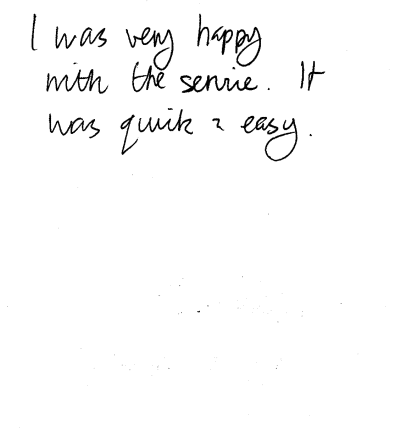 I was very happy
with the service. It
was quick & easy.